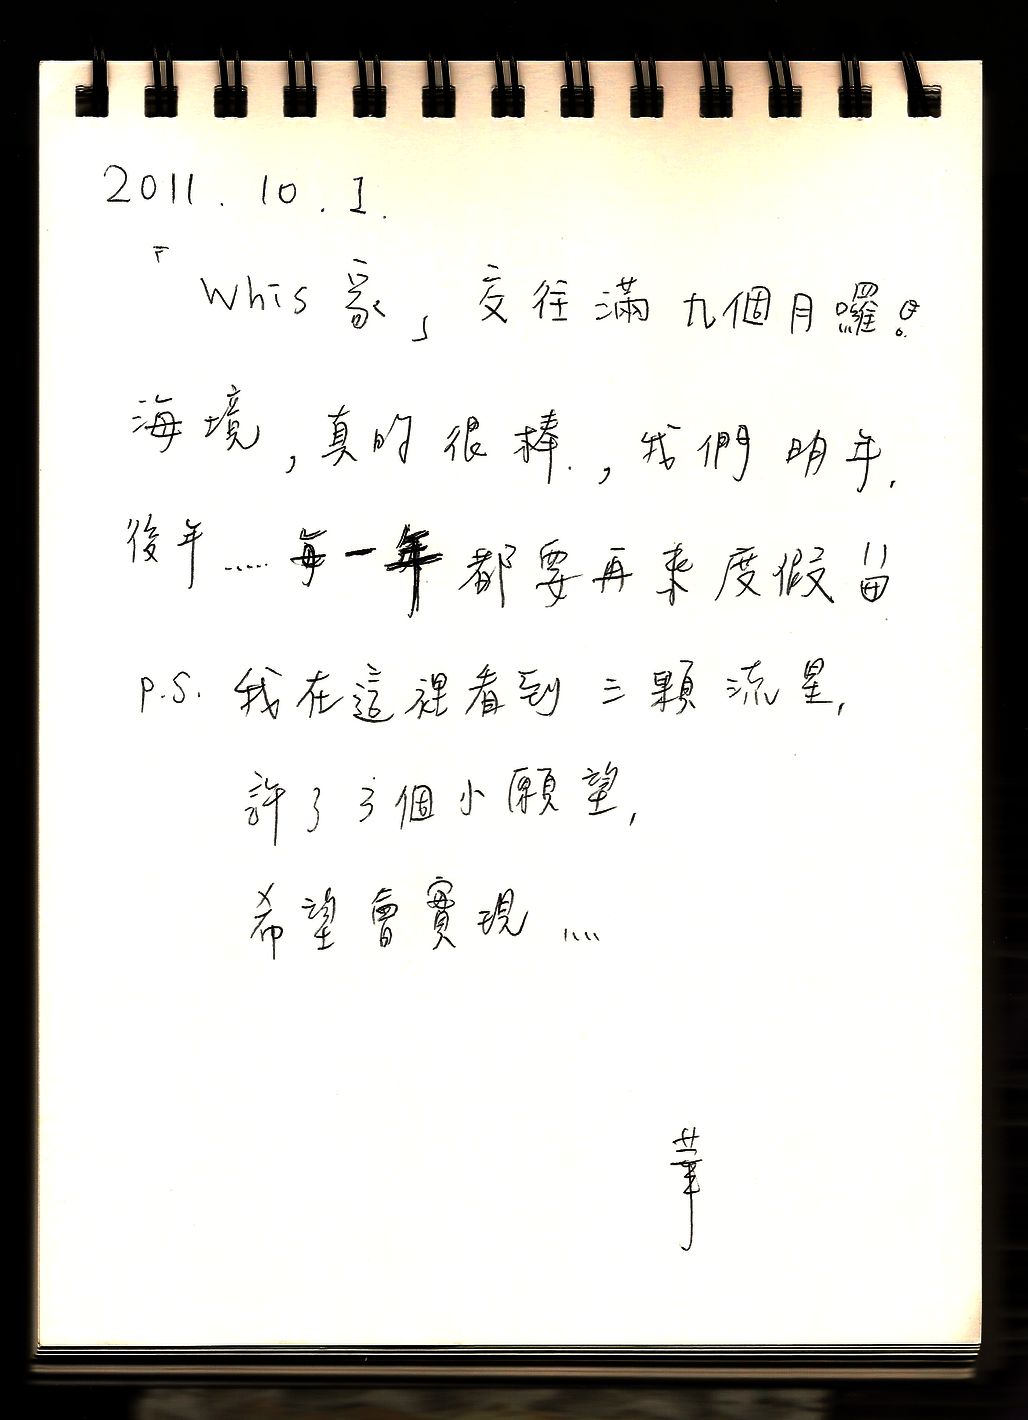 2011.10.1.
「Whis家」交往滿九個月囉!
海境,真的很棒.,我們明年,
後年.....每一年都要再來度假
P.S.我在這裡看到三顆流星,
許了3個小願望,
希望會實現....